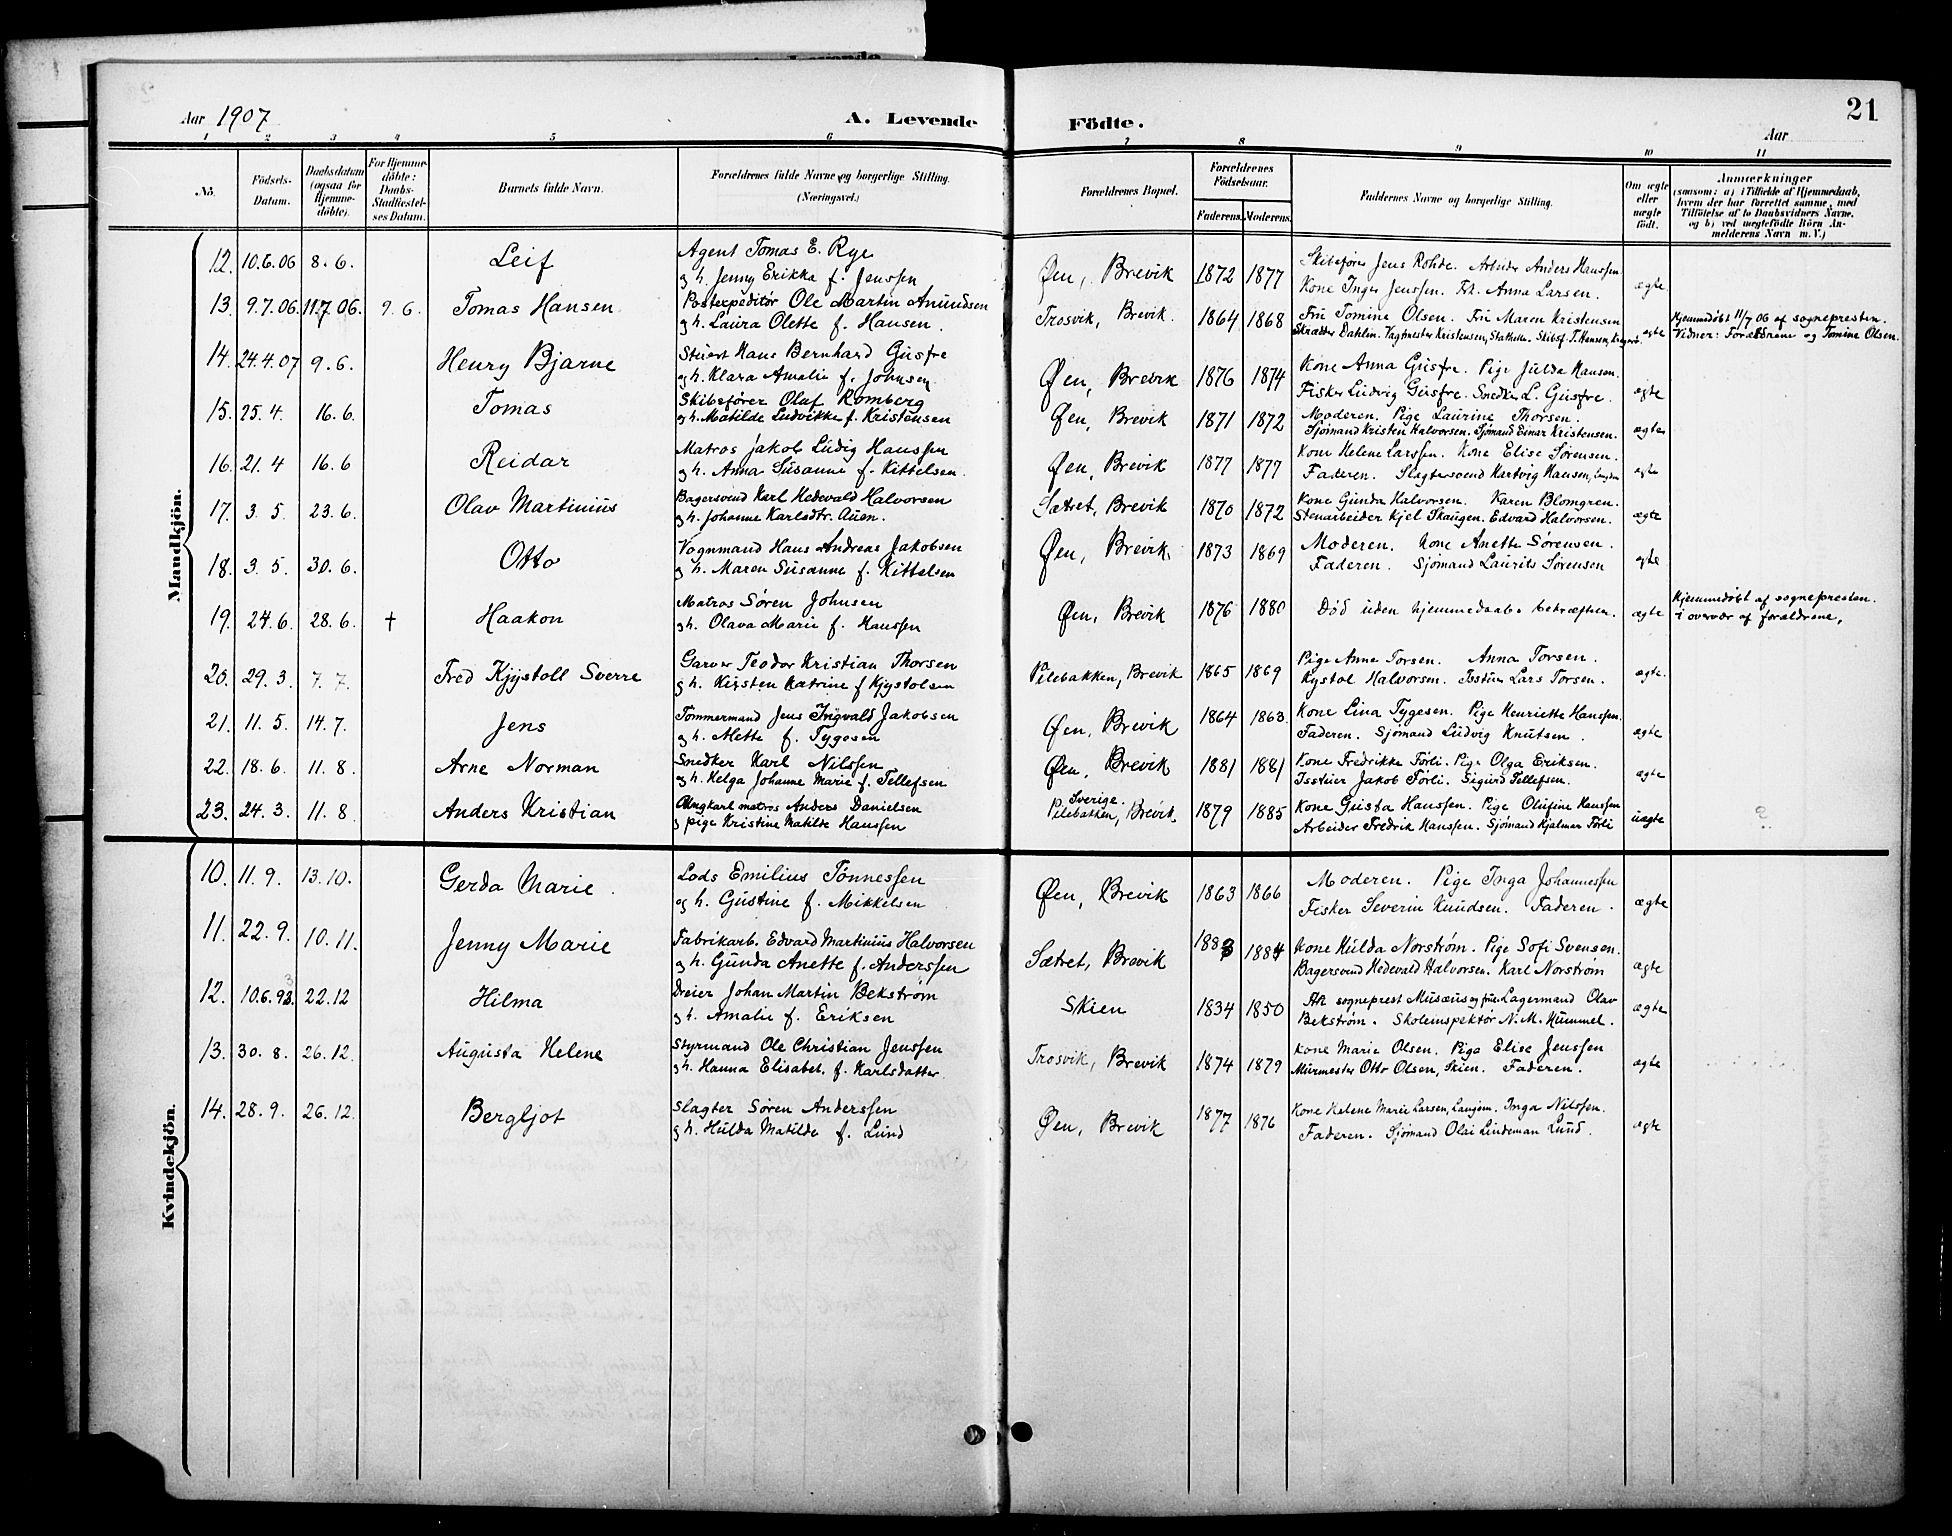 Aar 1907
A. Levende Födte.
21
Aar
1 2 3 4 5 6 7 8 9 10 11
No.
Födsels-Datum.
Daabsdatum (ogsaa for Hjemmedöbte).
For Hjemmedöbte: Daabs-Stadfæstelses Datum.
Barnets fulde Navn.
Forældrenes fulde Navne og borgerlige Stilling. (Næringsvei.)
Forældrenes Bopæl.
Forældrenes Födselsaar.
Faderens. Moderens.
Faddernes Navne og borgerlige Stilling.
Om ægte eller uægte födt.
Anmærkninger (saasom: a) i Tilfælde af Hjemmedaab, hvem der har forrettet samme, med Tilföielse af to Daabsvidners Navne, og b) ved uægtefödte Börn Anmelderens Navn m. V.)
Mandkjön.
12. 10.6.06 8.6. Leif Agent Tomas E. Rye
og h. Jenny Erikka f. Jenssen Øen, Brevik 1872 1877 Skibsfører Jens Rohde. Arbeider Anders Hanssen
Kone Inger Jenssen. Frk. Anna Larsen. ægte
13. 9.7.06. 11.7.06. 9.6. Tomas Hansen Postexpeditør Ole Martin Amundsen
og h. Laura Olette f. Hansen. Trosvik, Brevik. 1864 1868 Fru Tomine Olsen. Fru Maren Kristensen
Skrædder Dahlin. Vagtmester Kristensen, Stathelle. Skibsf. T. Hansen, ægte Hjemmedøbt 11/7 06 af sognepresten.
Vidner: Forældrene og Tomine Olsen.
14. 24.4.07 9.6. Henry Bjarne Stuert Hans Bernhard Gusfre
og h. Klara Amalie f. Johnsen Øen, Brevik 1876 1874 Kone Anna Gusfre. Pige Julda Hansen.
Fisker Ludvig Gusfre. Snedker L. Gusfre. ægte
15. 25.4. 16.6. Tomas Skibsfører Olaf Romberg
og h. Matilde Ludvikke f. Kristensen Øen, Brevik 1871 1872 Moderen. Pige Laurine Thorsen.
Sjømand Kristen Halvorsen. Sjømand Einar Kristensen. ægte
16. 21.4 16.6 Reidar Matros Jakob Ludig Hanssen
og h. Anna Susanne f. Kittelsen. Øen, Brevik 1877 1877 Kone Helene Larssen. Kone Elise Sørensen.
Faderen. Slagtersvend Hartvig Hansen, ægte
17. 3.5. 23.6. Olav Martinius Bagersvend Karl Hedevald Halvorsen
og h. Johanne Karlsdtr. Auen. Sætret, Brevik 1870 1872 Kone Gunda Halvorsen. Karen Blomgren.
Stenarbeider Kjel Skaugen. Edvard Halvorsen. ægte
18. 3.5. 30.6. Otto Vognmand Hans Andreas Jakobsen
og h. Maren Susanne f. Kittelsen Øen, Brevik. 1873 1869 Moderen. Kone Anette Sørensen.
Faderen. Sjømand Laurits Sørensen ægte
19. 24.6. 28.6. † Haakon Matros Søren Johnsen
og h. Olava Marie f. Hanssen Øen, Brevik 1876 1880 Død uden hjemmedaabs bekræftnin. ægte Hjemmedøbt af sognepresten.
i overvær af forældrene,
20. 29.3. 7.7. Fred Kjystoll Sverre Garver Teodor Kristian Thorsen
og h. Kirsten Katrine f Kjystolsen Pilebakken, Brevik 1865 1869 Pige Anne Torsen. Anna Torsen.
Kystol Halvorsen. Isstuer Lars Torsen. ægte.
21. 11.5. 14.7. Jens Tømmermand Jens Ingvald Jakobsen
og h. Mette f. Tygesen Øen, Brevik 1864 1863. Kone Lina Tygesen. Pige Henriette Hanssen.
Faderen. Sjømand Ludvig Knutsen. ægte
22. 18.6. 11.8. Arne Norman Snedker Karl Nilssen
og h. Helga Johanne Marie f. Tellefsen Øen, Brevik 1881 1881 Kone Fredrikke Førli. Pige Olga Eriksen.
Isstuer Jakob Førli. Sigurd Tellefsen. ægte
23. 24.3. 11.8. Anders Kristian Ungkarl matros Anders Danielsen
og pige Kristine Matilde Hanssen Sverige.
Pilebakken, Brevik. 1879 1885 Kone Gusta Hanssen. Pige Olufine Hanssen
Arbeider Fredrik Hanssen. Sjømand Hjalmar Førli uægte
Kvindekjön.
10. 11.9. 13.10. Gerda Marie. Lods Emilius Tønnessen
og h. Gustine f. Mikkelsen Øen, Brevik 1863 1866 Moderen. Pige Inga Johannessen
Fisker Severin Knudsen. Faderen. ægte
11. 22.9. 10.11. Jenny Marie Fabrikarb. Edvard Martinius Halvorsen
og h. Gunda Anette f. Anderssen Sætret, Brevik 1883 1884 Kone Hulda Norstrøm. Pige Sofi Svensen.
Bagersvend Hedevald Halvorsen. Karl Norstrøm ægte
12. 10.6.93. 22.12 Hilma Dreier Johan Martin Bekstrøm
og h. Amalie f. Eriksen Skien 1834 1850 sogneprest Musæus og frue. Lagermand Olav
Bekstrøm. Skoleinspektør N.M. Hummel. ægte
13. 30.8. 26.12. Augusta Helene Styrmand Ole Christian Jenssen
og h. Hanna Elisabet. f. Karlsdatter. Trosvik, Brevik 1874 1879 Kone Marie Olsen. Pige Elise Jenssen
Murmester Otto Olsen, Skien. Faderen. ægte
14. 28.9. 26.12. Bergljot Slagter Søren Anderssen
og h. Hulda Matilde f. Lund Øen, Brevik 1877 1876 Kone Helene Marie Larsen, Langøen. Inga Nilssen.
Faderen. Sjømand Olai Lindeman Lund. ægte